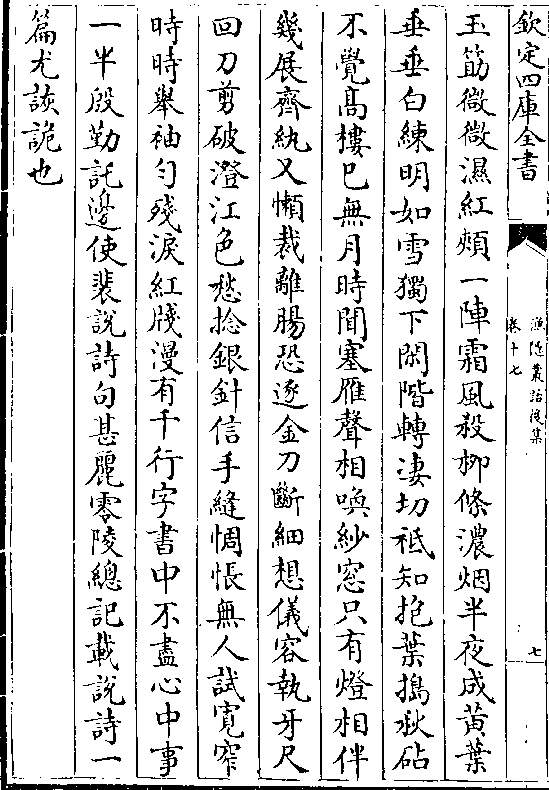 欽定四庫全書
漁隱叢話後集
卷十七
七
玉筯㣲㣲濕紅頰一陣霜風殺柳條濃烟半夜成黃葉
垂垂白練明如雪獨下閑階轉淒切祗知抱葉搗秋砧
不覺髙樓已無月時聞塞雁聲相喚紗窓只有燈相伴
幾展齊紈又懶裁離腸恐逐金刀斷細想儀容執牙尺
回刀剪破澄江色愁捻銀針信手縫惆悵無人試寛窄
時時舉袖匀殘淚紅牋漫有千行字書中不盡心中事
一半殷勤託邊使裴說詩句甚麗零陵總記載說詩一
篇尤詼詭也